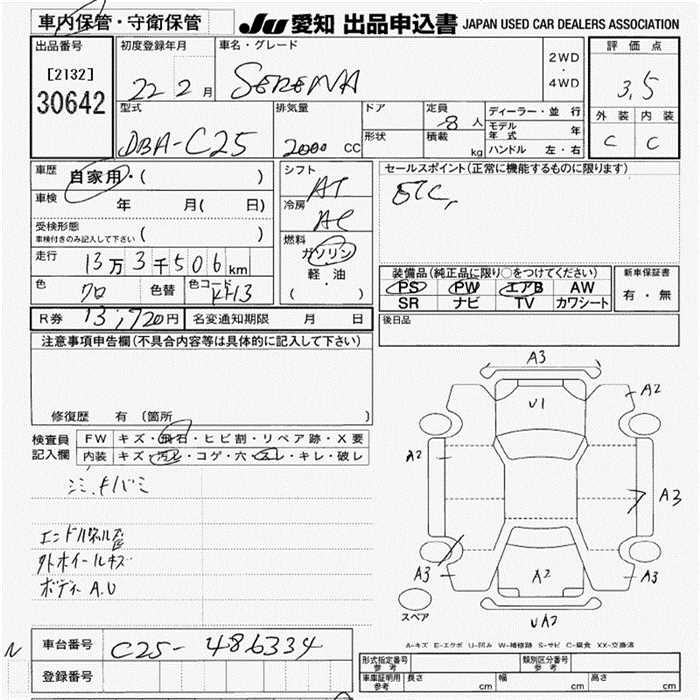 車内保管・守衛保管 JU 愛知 出品申込書 JAPAN USED CAR DEALERS ASSOCIATION
出品番号 初度登録年月 車名・グレード 評価点
[2132] 22 2 月 SERENA 2WD・4WD 3.5
30642
型式 排気量 ドア 定員 ディーラー・並行 外装 内装
DBA-C25 2000 CC 8 人 モデル年式 年 C C
形状 積載 kg ハンドル 左・右
車歴 自家用・( ) シフト AT セールスポイント(正常に機能するものに限ります)
車検 年 月( 日) 冷房 AC ETC,
受検形態
車検付きのみ記入して下さい ( ) 燃料
走行 13万3千506km ガソリン 装備品(純正品に限り○をつけてください) 新車保証書
軽・油 PS PW エアB AW 有・無
色 クロ 色替 色コード KH3 ( ) SR ナビ TV カワシート
R券 13,720円 名変通知期限 月 日 後日品
注意事項申告欄(不具合内容等は具体的に記入して下さい)
修復歴 有 (箇所 )
検査員 FW キズ・飛石・ヒビ割・リペア跡・X要
記入欄 内装 キズ・汚レ・コゲ・穴・スレ・キレ・破レ
シミ,キバミ
外ホイールキズ
ボディー A.U
A3
U1 A2
A2
A3
A3 A2 A3
スペア UA2
A-キズ E-エクボ U-凹み W-補修跡 S-サビ C-腐食 XX-交換済
N 車台番号 C25-486334
登録番号
形式指定番号 参考 類別区分番号 参考
車庫証明用 参考 長さ cm 幅 cm 高さ cm